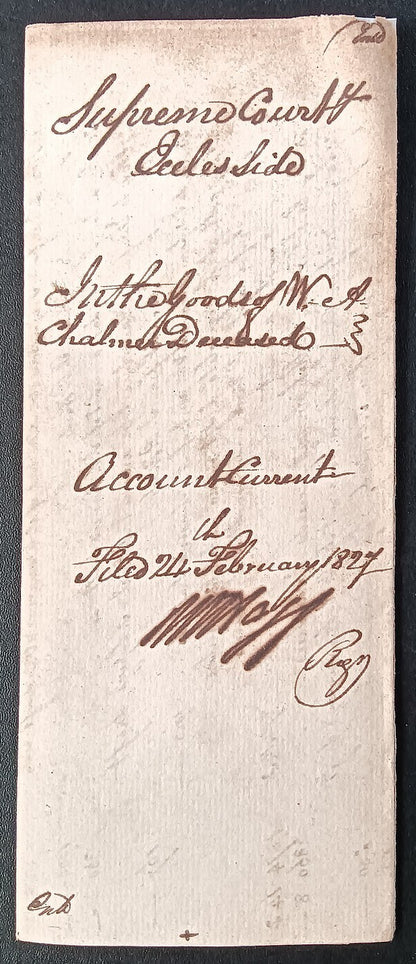 Entd
Supreme Court
Eccles Side
In the Goods of W. A.
Chalmer Deceased
Account Current
th
Filed 24 February 1827
Regr
Entd